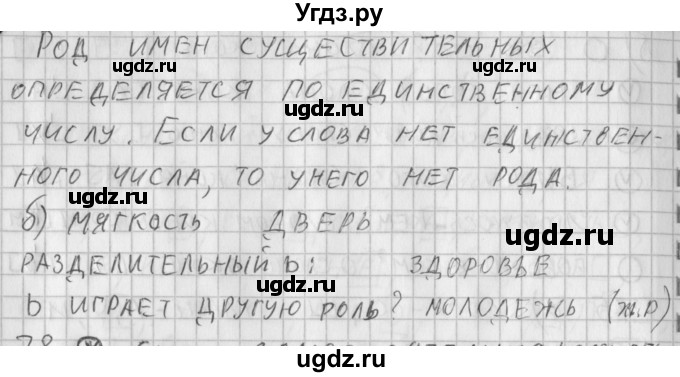 Угдз.ру
РОД ИМЕН СУЩЕСТВИТЕЛЬНЫХ
ugdz.ru ugdz.ru
ОПРЕДЕЛЯЕТСЯ ПО ЕДИНСТВЕННОМУ
ЧИСЛУ. ЕСЛИ У СЛОВА НЕТ ЕДИНСТВЕН-
НОГО ЧИСЛА, ТО У НЕГО НЕТ РОДА.
ugdz.ru
б) МЯГКОСТЬ ДВЕРЬ
ugdz.ru
РАЗДЕЛИТЕЛЬНЫЙ Ь: ЗДОРОВЬЕ
ugdz.ru ugdz.ru
Ь ИГРАЕТ ДРУГУЮ РОЛЬ? МОЛОДЕЖЬ (Ж.Р)
ugdz.ru